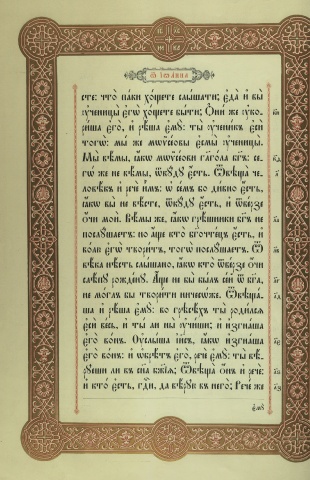 Ѿ І҆ѡа́нна
сте: что̀ па́ки хо́щете слы́шати; є҆да̀ и҆ вы̀
ᲂу҆чн҃цы̀ є҆гѡ̀ хо́щете бы́ти; Ѻ҆ни́ же ᲂу҆кори́-
ша є҆го̀, и҆ рѣ́ша є҆мꙋ̀: ты̀ ᲂу҆чени́къ є҆сѝ
тогѡ̀: мы́ же мѡѷсе́ови є҆смы̀ ᲂу҆ченицы̀.
Мы̀ вѣ́мы, ꙗ҆́кѡ мѡѷсе́ови гл҃гола бг҃ъ: се-
гѡ́ же не вѣ́мы, ѿкꙋ́дꙋ є҆́сть. Ѿвѣща̀ че-
ловѣ́къ и҆ речѐ и҆̀мъ: ѡ҆ се́мъ бо ди́вно є҆́сть,
ꙗ҆́кѡ вы̀ не вѣ́сте, ѿкꙋ́дꙋ є҆́сть, и҆ ѿве́рзе
ѻ҆́чи моѝ. Вѣ́мы же, ꙗ҆́кѡ грѣ́шники бг҃ъ не
послꙋ́шаетъ: но а҆́ще кто̀ бг҃очте́цъ є҆́сть, и҆
во́лю є҆гѡ̀ твори́тъ, тогѡ̀ послꙋ́шаетъ. Ѿ
вѣ́ка нѣ́сть слы́шано, ꙗ҆́кѡ кто̀ ѿве́рзе ѻ҆́чи
слѣ́пꙋ рожде́нꙋ. А҆́ще не бы̀ бы́лъ се́й ѿ бг҃а,
не мо́глъ бы твори́ти ничесѡ́же. Ѿвѣща́-
ша и҆ рѣ́ша є҆мꙋ̀: во грѣсѣ́хъ ты̀ роди́лсѧ
є҆сѝ ве́сь, и҆ ты́ ли ны̀ ᲂу҆чи́ши; и҆ и҆згна́ша
є҆го̀ во́нъ. Оу҆слы́ша і҆и҃съ, ꙗ҆́кѡ и҆згна́ша
є҆го̀ во́нъ: и҆ ѡ҆брѣ́тъ є҆го̀, речѐ є҆мꙋ̀: ты́ вѣ́-
рꙋеши ли въ сн҃а бж҃їѧ; Ѿвѣща̀ ѻ҆́нъ и҆ речѐ:
и҆ кто́ є҆сть, гдⷭ҇и, да вѣ́рꙋю въ него̀; Рече́ же
є҆мꙋ̀